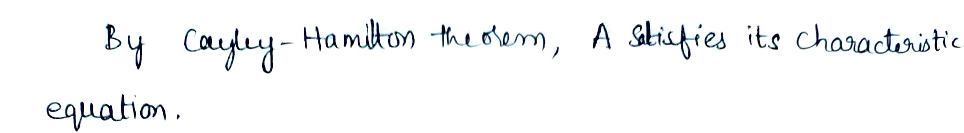 By Cayley-Hamilton theorem, A Satisfies its characteristic
equation.